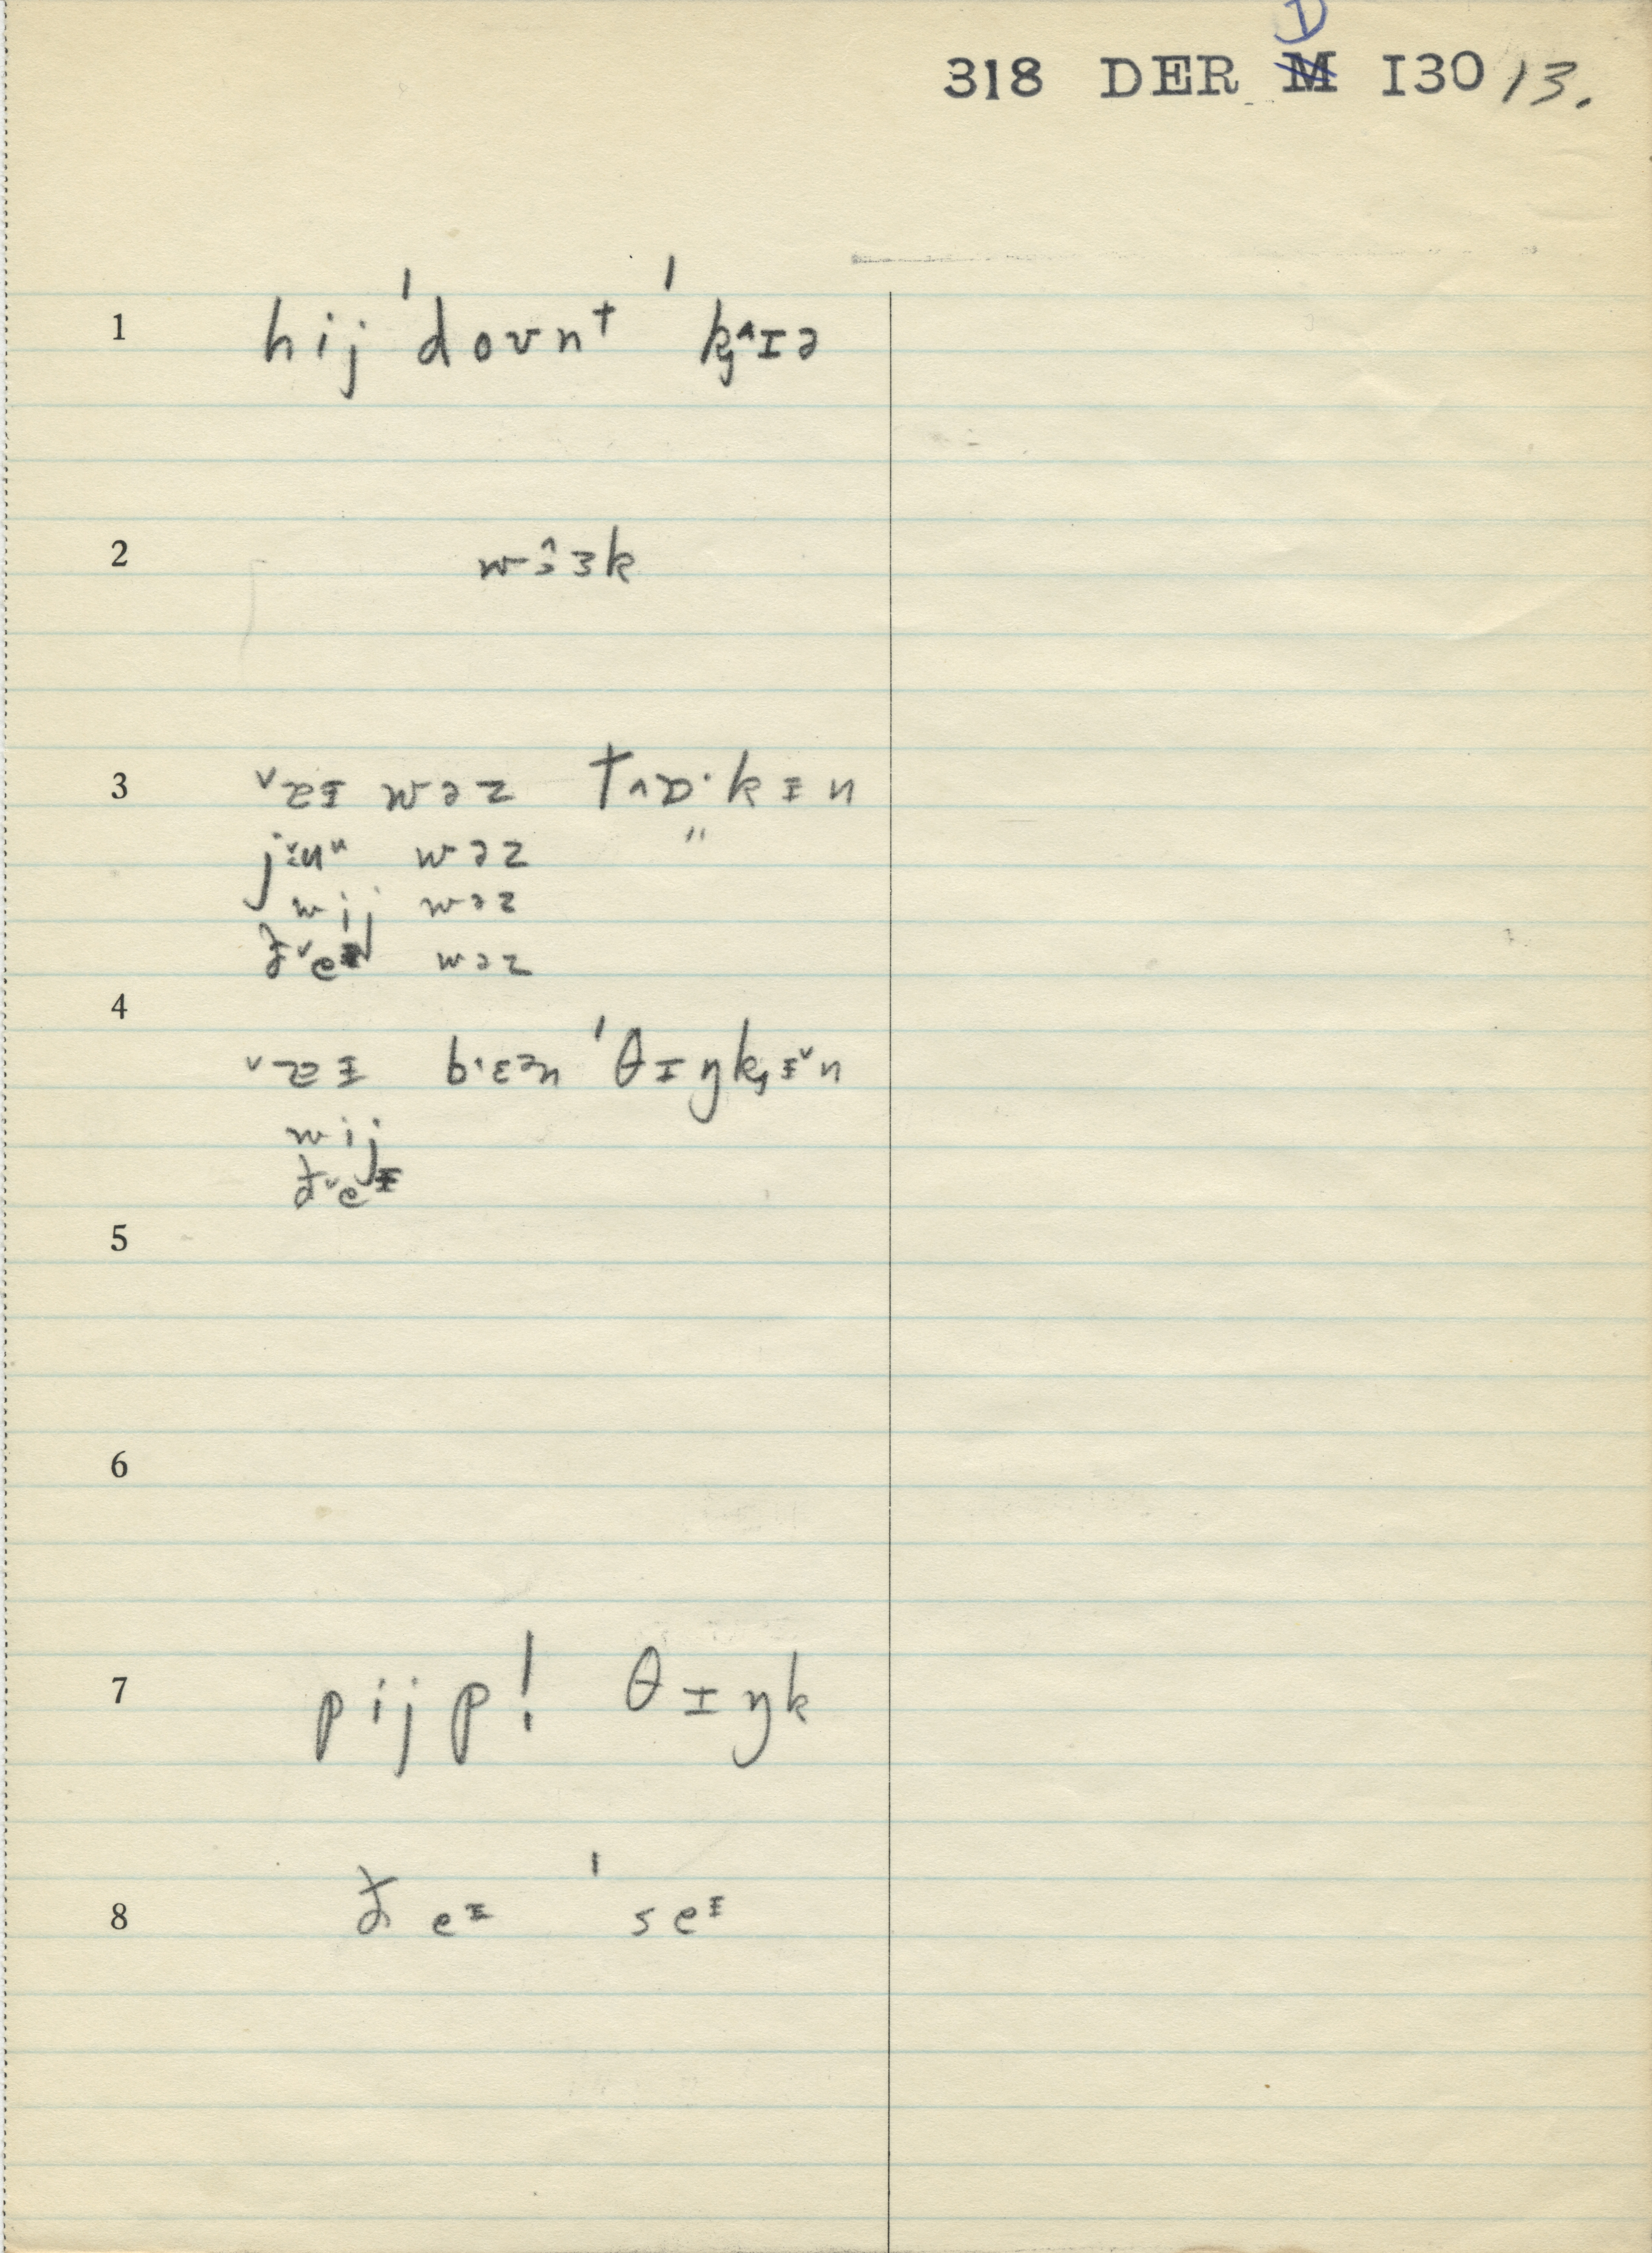 318 DER D I30 13.
1 hij ˈdoʊnt ˈkj^ɪə
2 wɜ^ɜk
3 ˅æɪ wəz tʌɒ·kɨn
j ʉ˅ʉ wəz "
wij wəz
ð˅eɪ wəz
4
˅æɪ b·ɛən ˈθɪŋkɨ˅n
wij
ð˅eɪ
5
6
7 pijp! θɪŋk
8 ðeɪ ˈseɪ